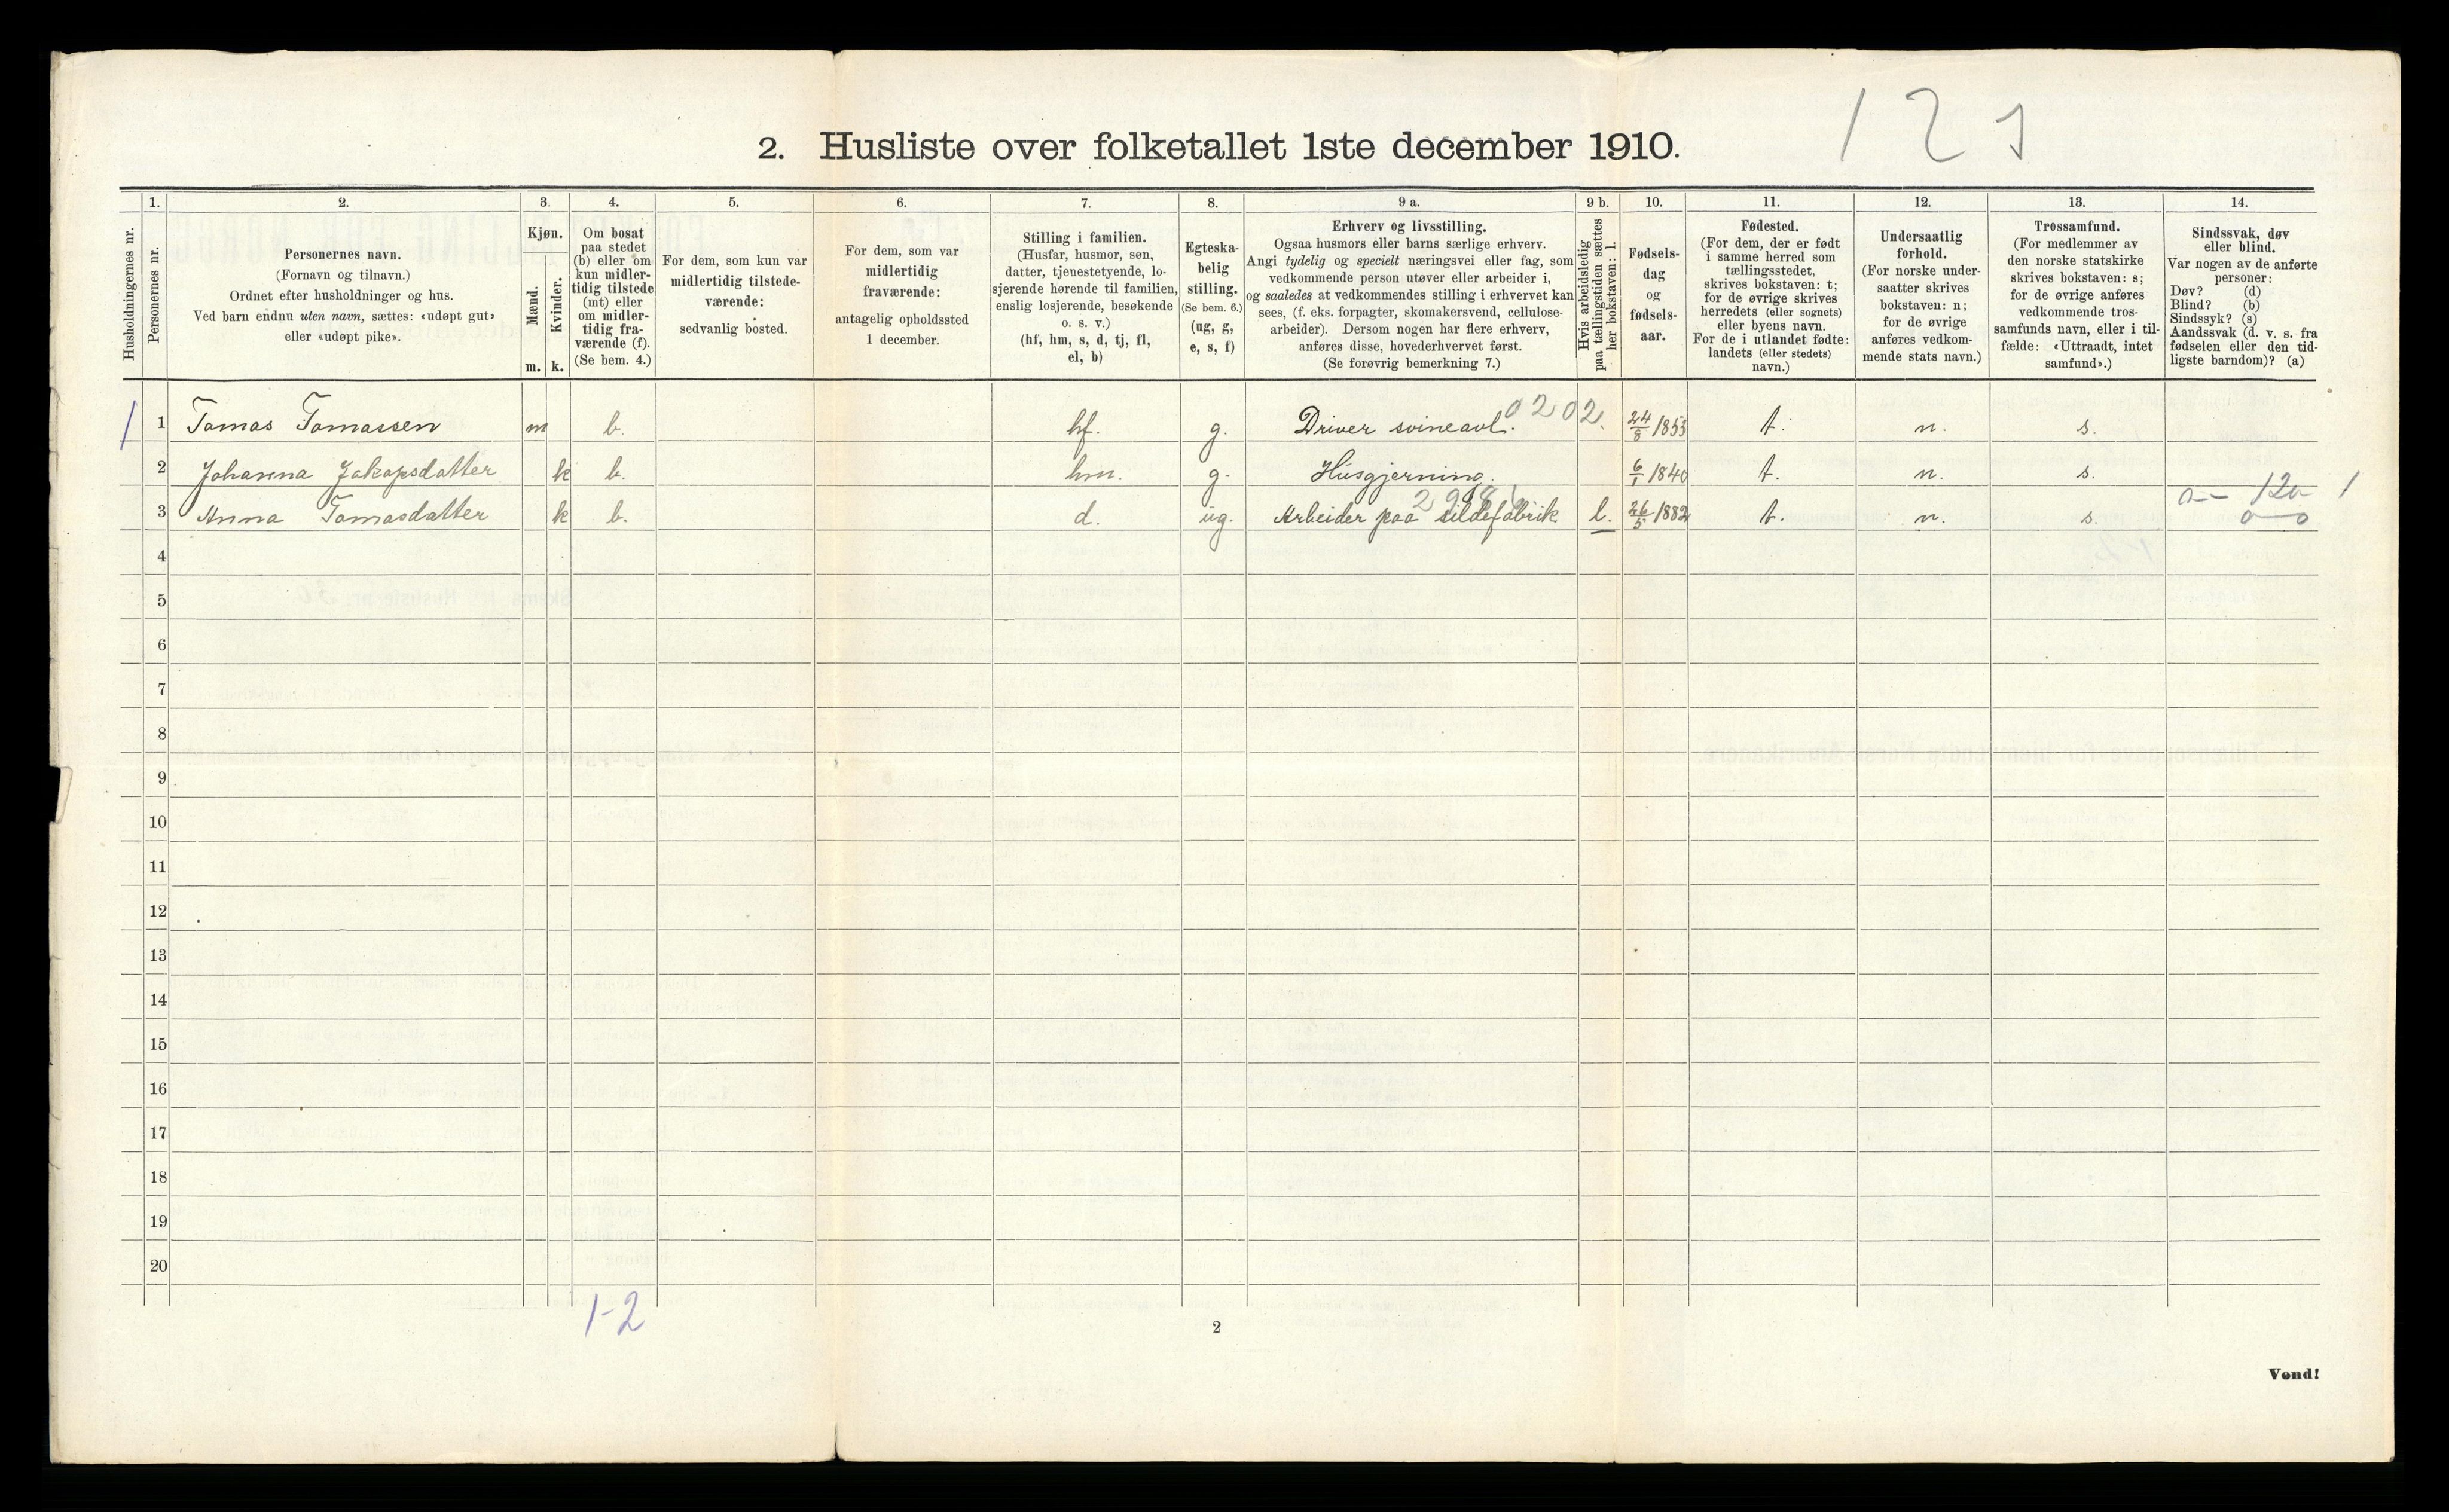 1 2 5
2. Husliste over folketallet 1ste december 1910.
Husholdningernes nr.
1.
Personernes nr.
2.
Personernes navn.
(Fornavn og tilnavn.)
Ordnet efter husholdninger og hus.
Ved barn endnu uten navn, sættes: «udøpt gut»
eller «udøpt pike».
3.
Kjøn.
Mænd.
Kvinder.
m. k.
4.
Om bosat
paa stedet
(b) eller om
kun midler-
tidig tilstede
(mt) eller
om midler-
tidig fra-
værende (f).
(Se bem. 4.)
5.
For dem, som kun var
midlertidig tilstede-
værende:
sedvanlig bosted.
6.
For dem, som var
midlertidig
fraværende:
antagelig opholdssted
1 december.
7.
Stilling i familien.
(Husfar, husmor, søn,
datter, tjenestetyende, lo-
sjerende hørende til familien,
enslig losjerende, besøkende
o. s. v.)
(hf, hm, s, d, tj, fl,
el, b)
8.
Egteska-
belig
stilling.
(Se bem. 6.)
(ug, g,
e, s, f)
9 a.
Erhverv og livsstilling.
Ogsaa husmors eller barns særlige erhverv.
Angi tydelig og specielt næringsvei eller fag, som
vedkommende person utøver eller arbeider i,
og saaledes at vedkommendes stilling i erhvervet kan
sees, (f. eks. forpagter, skomakersvend, cellulose-
arbeider). Dersom nogen har flere erhverv,
anføres disse, hovederhvervet først.
(Se forøvrig bemerkning 7.)
9 b.
Hvis arbeidsledig
paa tællingstiden sættes
her bokstaven: l.
10.
Fødsels-
dag
og
fødsels-
aar.
11.
Fødested.
(For dem, der er født
i samme herred som
tællingsstedet,
skrives bokstaven: t;
for de øvrige skrives
herredets (eller sognets)
eller byens navn.
For de i utlandet fødte:
landets (eller stedets)
navn.)
12.
Undersaatlig
forhold.
(For norske under-
saatter skrives
bokstaven: n;
for de øvrige
anføres vedkom-
mende stats navn.)
13.
Trossamfund.
(For medlemmer av
den norske statskirke
skrives bokstaven: s;
for de øvrige anføres
vedkommende tros-
samfunds navn, eller i til-
fælde: «Uttraadt, intet
samfund».)
14.
Sindssvak, døv
eller blind.
Var nogen av de anførte
personer:
Døv? (d)
Blind? (b)
Sindssyk? (s)
Aandssvak (d. v. s. fra
fødselen eller den tid-
ligste barndom)? (a)
1 1 Tomas Tomassen m b. hf. g. Driver svineavl. 0202. 24/8 1853 t. n. s.
2 Johanna Jakopsdatter k b. hm. g. Husgjerning. 6/1 1840 t. n. s.
3 Anna Tomasdatter k b. d. ug. Arbeider paa sildefabrik l. 26/5 1882 t. n. s.
4
5
6
7
8
9
10
11
12
13
14
15
16
17
18
19
20
1-2
2
Vend!